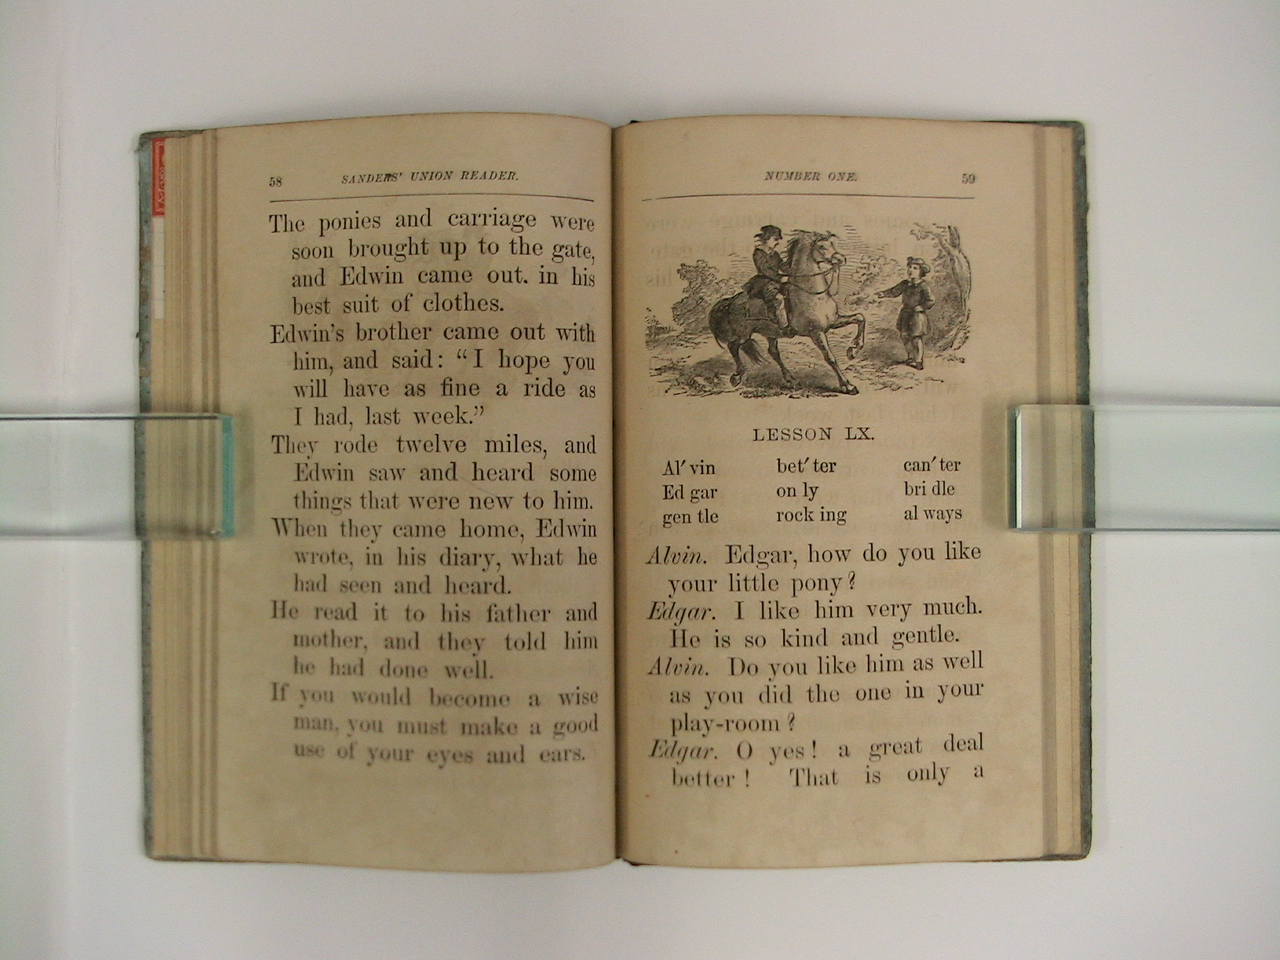 58 SANDERS' UNION READER.
The ponies and carriage were
soon brought up to the gate,
and Edwin came out. in his
best suit of clothes.
Edwin's brother came out with
him, and said: "I hope you
will have as fine a ride as
I had, last week."
They rode twelve miles, and
Edwin saw and heard some
things that were new to him.
When they came home, Edwin
wrote, in his diary, what he
had seen and heard.
He read it to his father and
mother, and they told him
he had done well.
If you would become a wise
man, you must make a good
use of your eyes and ears.
NUMBER ONE. 59
LESSON LX.
Al′vin bet′ter can′ter
Ed gar on ly bri dle
gen tle rock ing al ways
Alvin. Edgar, how do you like
your little pony?
Edgar. I like him very much.
He is so kind and gentle.
Alvin. Do you like him as well
as you did the one in your
play-room?
Edgar. O yes! a great deal
better! That is only a